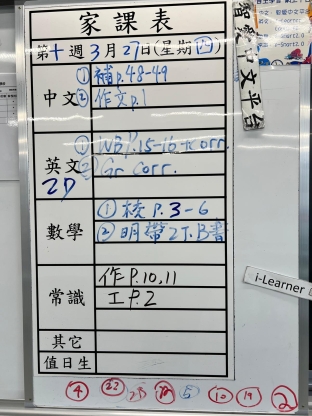 家課表
第十週3月27日(星期四)
中文
① 補p.48-49
② 作文p.1
英文
2D
① WB P.15-16 + corr.
② Gr corr.
數學
① 校 P.3-6
② 明帶2下B書
常識
作P.10,11
工P.2
其它
值日生
④ ㉒ ⑤ ⑩ ⑲ ②
智愛中文平台
i-Learner